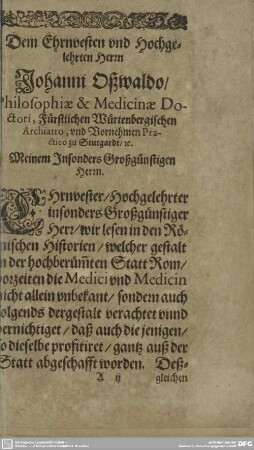 Dem Ehrnvesten vnd Hochge-
lehrten Herrn
Johanni Oßwaldo/
Philosophiæ & Medicinæ Do-
ctori, Fürstlichen Würtenbergischen
Archiatro, vnd Vornehmen Pra-
ctico zu Stutgardt/ ꝛc.
Meinem Insonders Großgünstigen
Herrn.
EHrnvester/ Hochgelehrter
insonders Großgünstiger
Herr/ wir lesen in den Rö-
mischen Historien/ welcher gestalt
in der hochberümten Statt Rom/
vorzeiten die Medici vnd Medicin
nicht allein vnbekant/ sondern auch
folgends dergestalt verachtet vnnd
vernichtiget/ daß auch die jenigen/
so dieselbe profitiret/ gantz auß der
Statt abgeschafft worden. Deß-
A ij gleichen